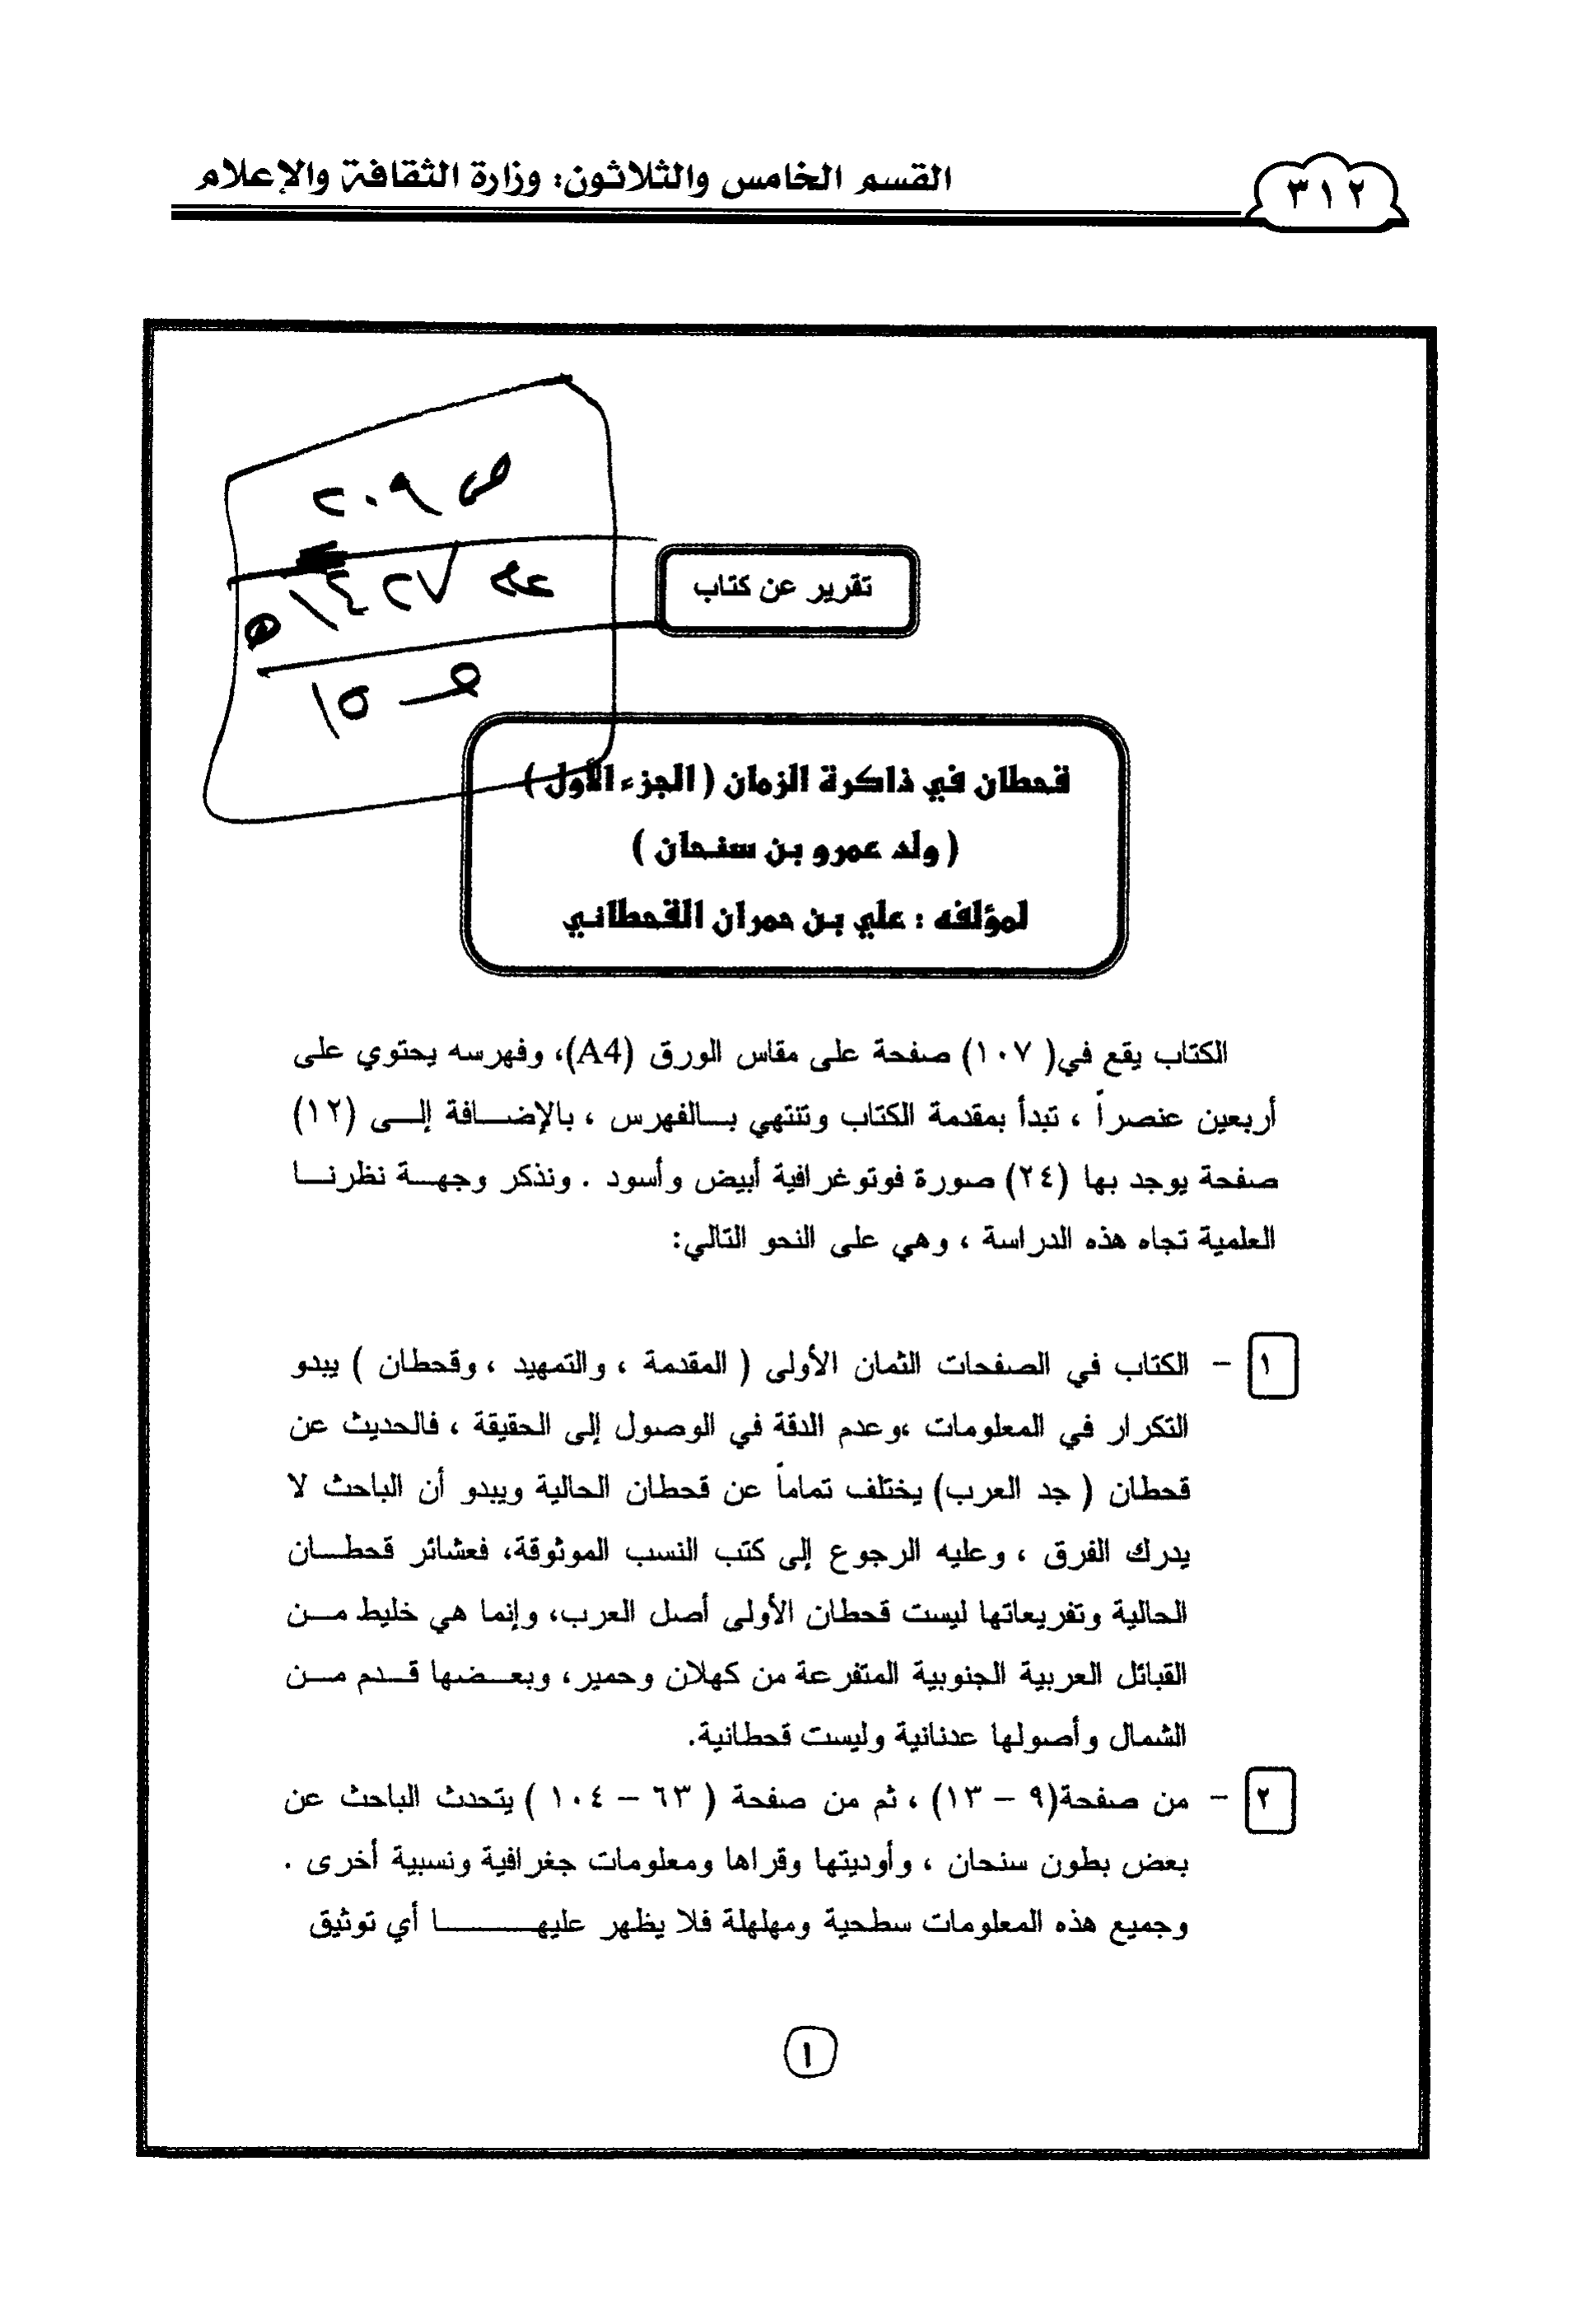 ٣١٢
القسم الخامس والثلاثون: وزارة الثقافة والإعلام
ص ٢٠٩
تقرير عن كتاب
قحطان في ذاكرة الزمان ( الجزء الأول )
( ولد عمرو بن سنحان )
لمؤلفه : علي بن حمران القحطاني
الكتاب يقع في( ١٠٧) صفحة على مقاس الورق (A4)، وفهرسه يحتوي على
أربعين عنصراً ، تبدأ بمقدمة الكتاب وتنتهي بالفهرس ، بالإضافة إلى (١٢)
صفحة يوجد بها (٢٤) صورة فوتوغرافية أبيض وأسود . ونذكر وجهة نظرنا
العلمية تجاه هذه الدراسة ، وهي على النحو التالي:
١ - الكتاب في الصفحات الثمان الأولى ( المقدمة ، والتمهيد ، وقحطان ) يبدو
التكرار في المعلومات ،وعدم الدقة في الوصول إلى الحقيقة ، فالحديث عن
قحطان ( جد العرب) يختلف تماماً عن قحطان الحالية ويبدو أن الباحث لا
يدرك الفرق ، وعليه الرجوع إلى كتب النسب الموثوقة، فعشائر قحطان
الحالية وتفريعاتها ليست قحطان الأولى أصل العرب، وإنما هي خليط من
القبائل العربية الجنوبية المتفرعة من كهلان وحمير، وبعضها قدم من
الشمال وأصولها عدنانية وليست قحطانية.
٢ - من صفحة(٩ - ١٣) ، ثم من صفحة ( ٦٣ - ١٠٤ ) يتحدث الباحث عن
بعض بطون سنحان ، وأوديتها وقراها ومعلومات جغرافية ونسبية أخرى .
وجميع هذه المعلومات سطحية ومهلهلة فلا يظهر عليها أي توثيق
١